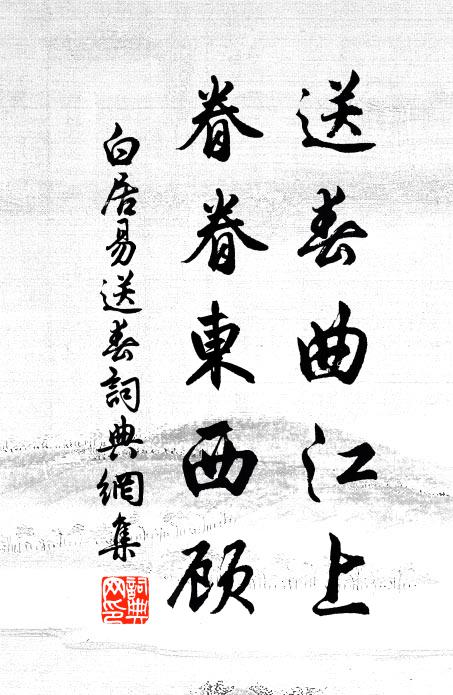 送春曲江上
眷眷東西顾
白居易送春詞典網集
詞典网印